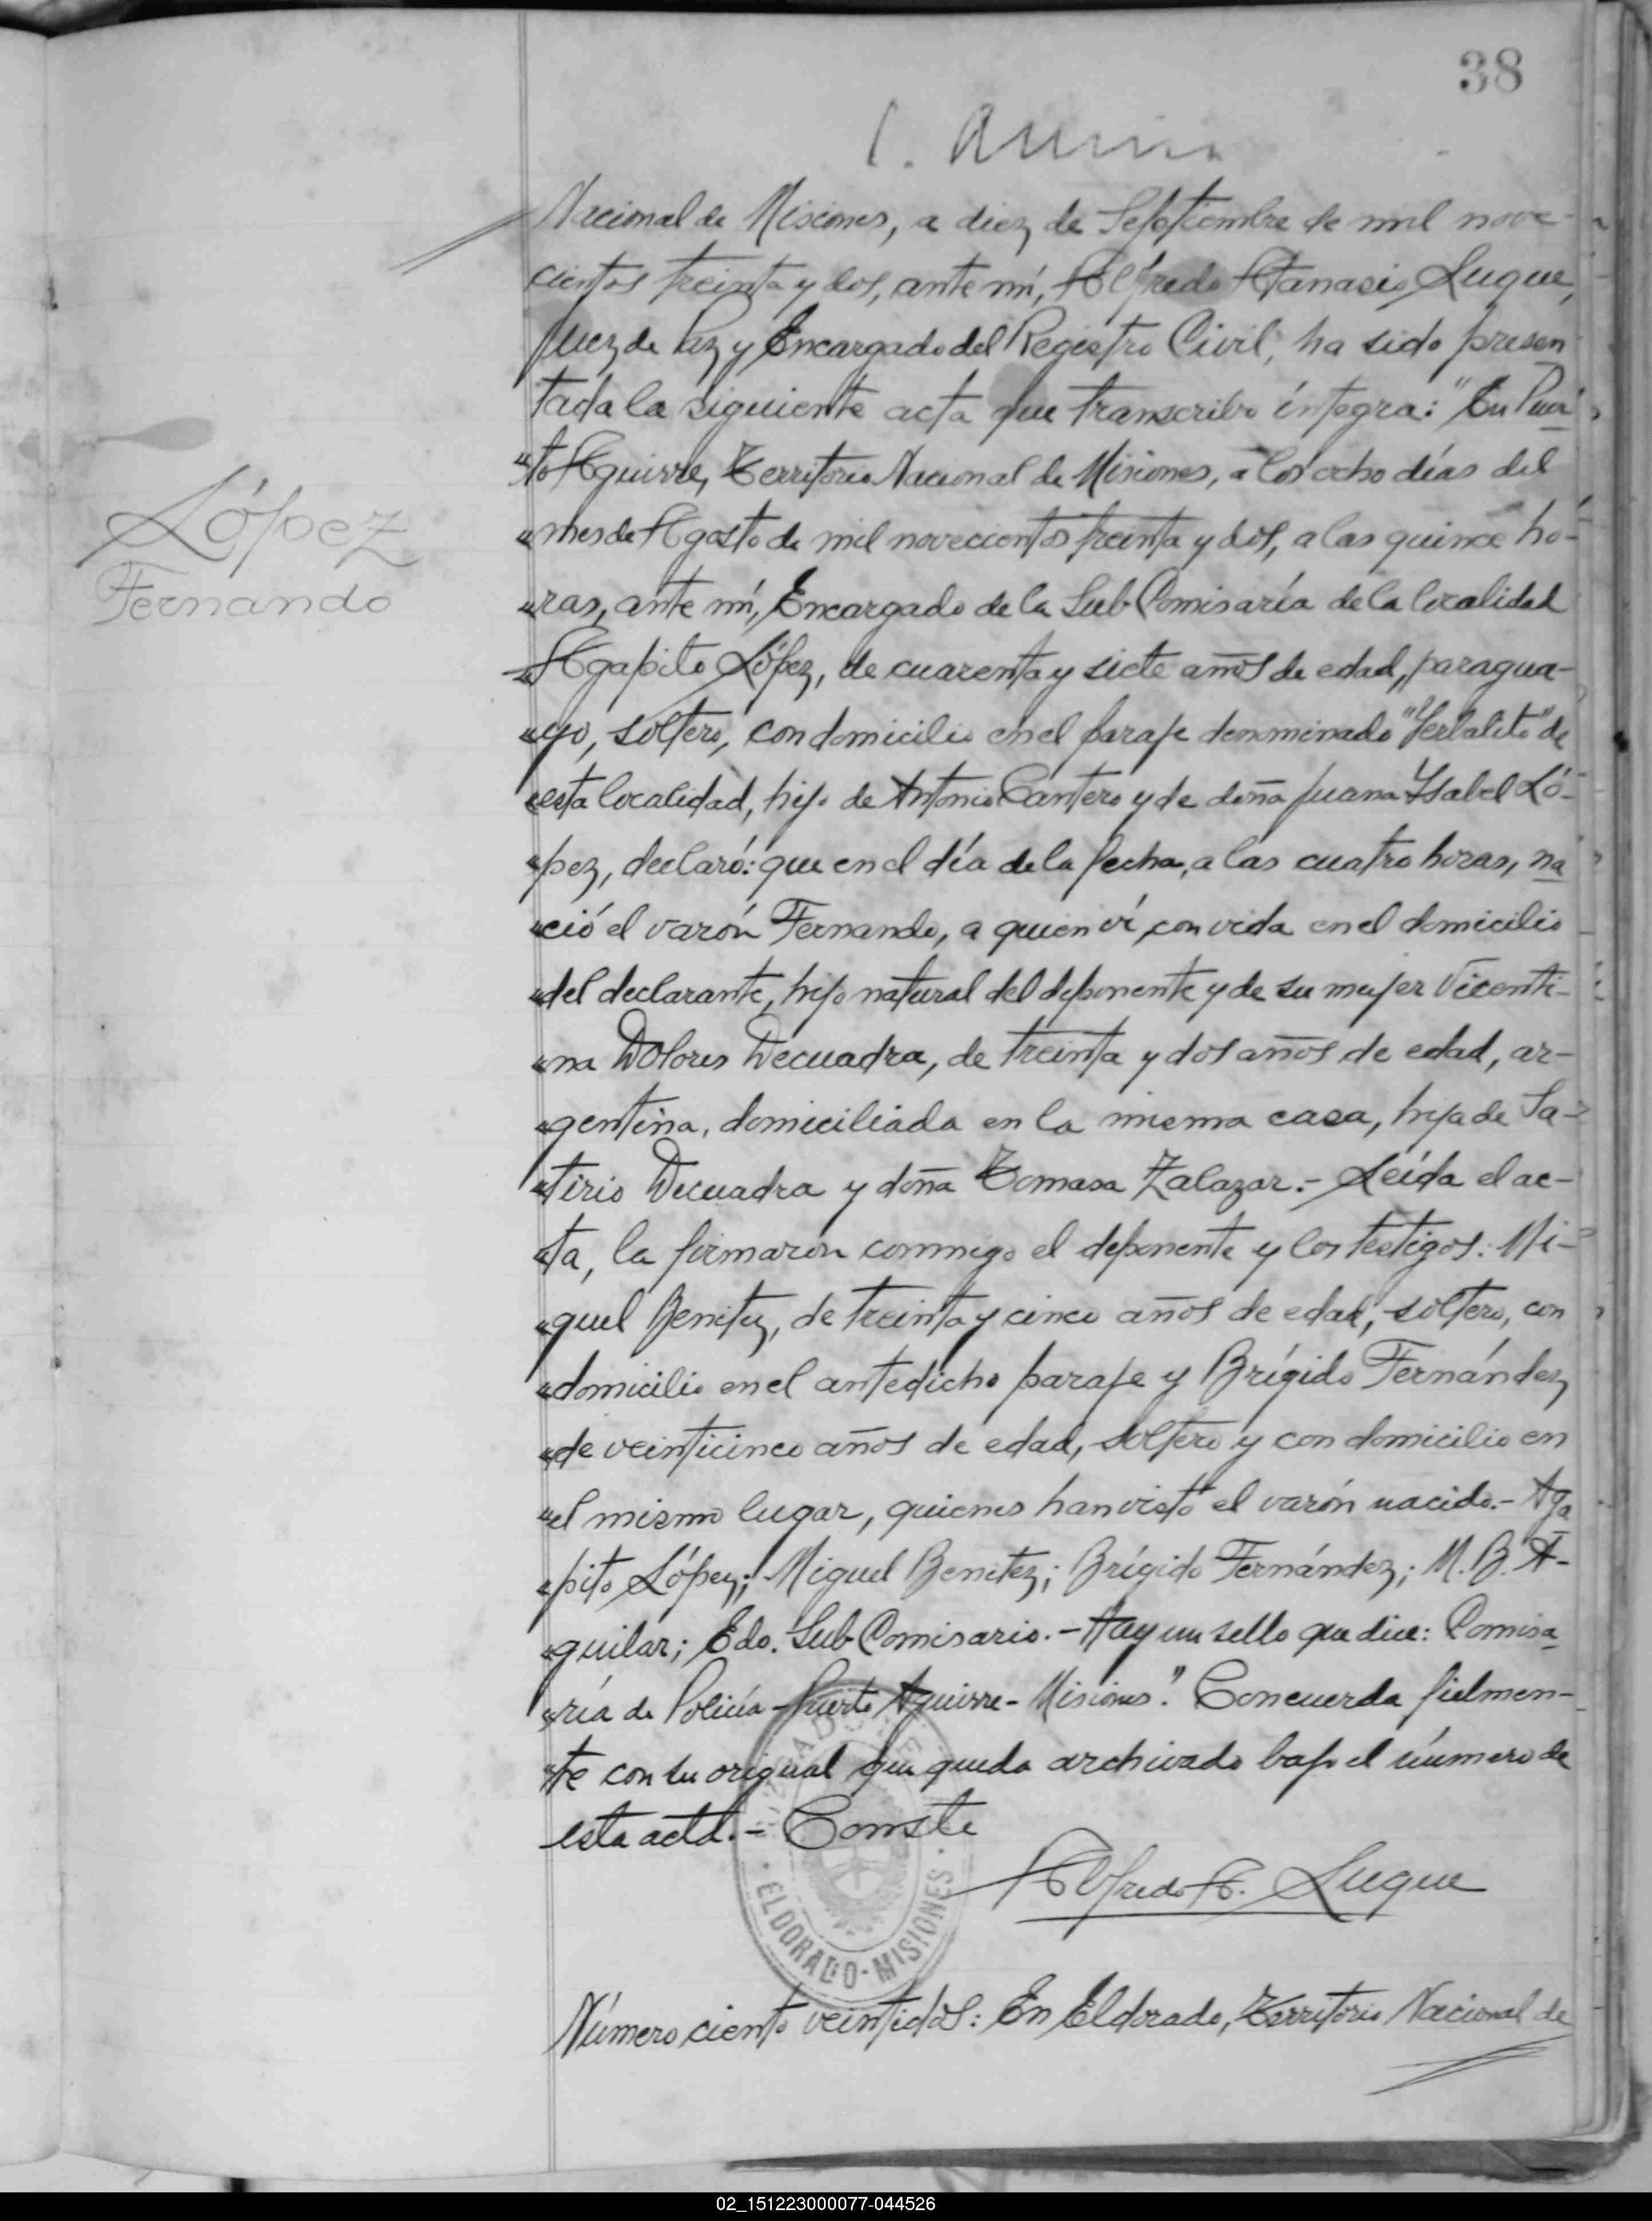 38
Nacional de Misiones, a diez de Septiembre de mil nove-
cientos treinta y dos, ante mí, Alfredo Atanasio Luque,
Juez de Paz y Encargado del Registro Civil, ha sido presen
tada la siguiente acta que transcribo íntegra: "En Puer
"to Aguirre, Territorio Nacional de Misiones, a los ocho días del
"mes de Agosto de mil novecientos treinta y dos, a las quince ho-
"ras, ante mí, Encargado de la Sub Comisaría de la localidad
"Agapito López, de cuarenta y siete años de edad, paragua-
"yo, soltero, con domicilio en el paraje denominado "Yerbalito" de
"esta localidad, hijo de Antonio Cantero y de doña Juana Ysabel Ló-
"pez, declaró: que en el día de la fecha, a las cuatro horas, na
"ció el varón Fernando, a quien ví con vida en el domicilio
"del declarante, hijo natural del deponente y de su mujer Vicenti-
"na Dolores Decuadra, de treinta y dos años de edad, ar-
"gentina, domiciliada en la misma casa, hija de Sa-
"tirio Decuadra y doña Tomasa Zalazar.- Leída el ac-
"ta, la firmaron conmigo el deponente y los testigos: Mi-
"guel Benitez, de treinta y cinco años de edad, soltero, con
"domicilio en el antedicho paraje y Brígido Fernández
"de veinticinco años de edad, soltero y con domicilio en
"el mismo lugar, quienes han visto el varón nacido.- Aga
"pito López; Miguel Benitez; Brígido Fernández; M. B. A-
"guilar; Edo. Sub Comisario.- Hay un sello que dice: Comisa
"ría de Policía - Puerto Aguirre - Misiones". Concuerda fielmen-
"te con su original que queda archivado bajo el número de
esta acta.- Conste
Alfredo A. Luque
ELDORADO - MISIONES
Número ciento veintidós: En Eldorado, Territorio Nacional de
López
Fernando
02_151223000077-044526